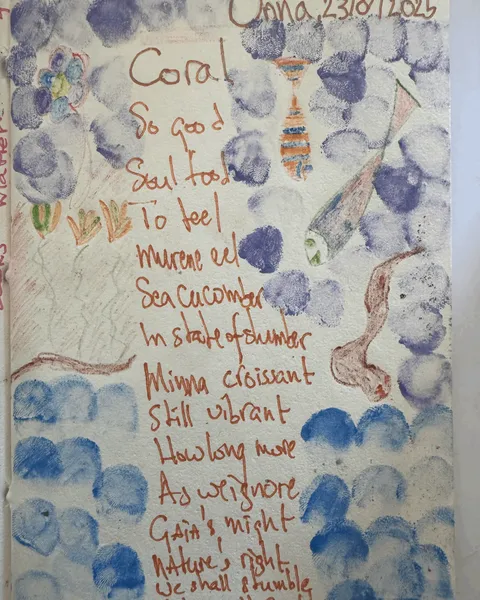 Onna, 23/07/2025
Coral
So good
Soul food
To feel
Murene eel
Sea cucumber
In state of slumber
Minna croissant
Still vibrant
How long more
As we ignore
GAIA's might
NAture's right
we shall stumble